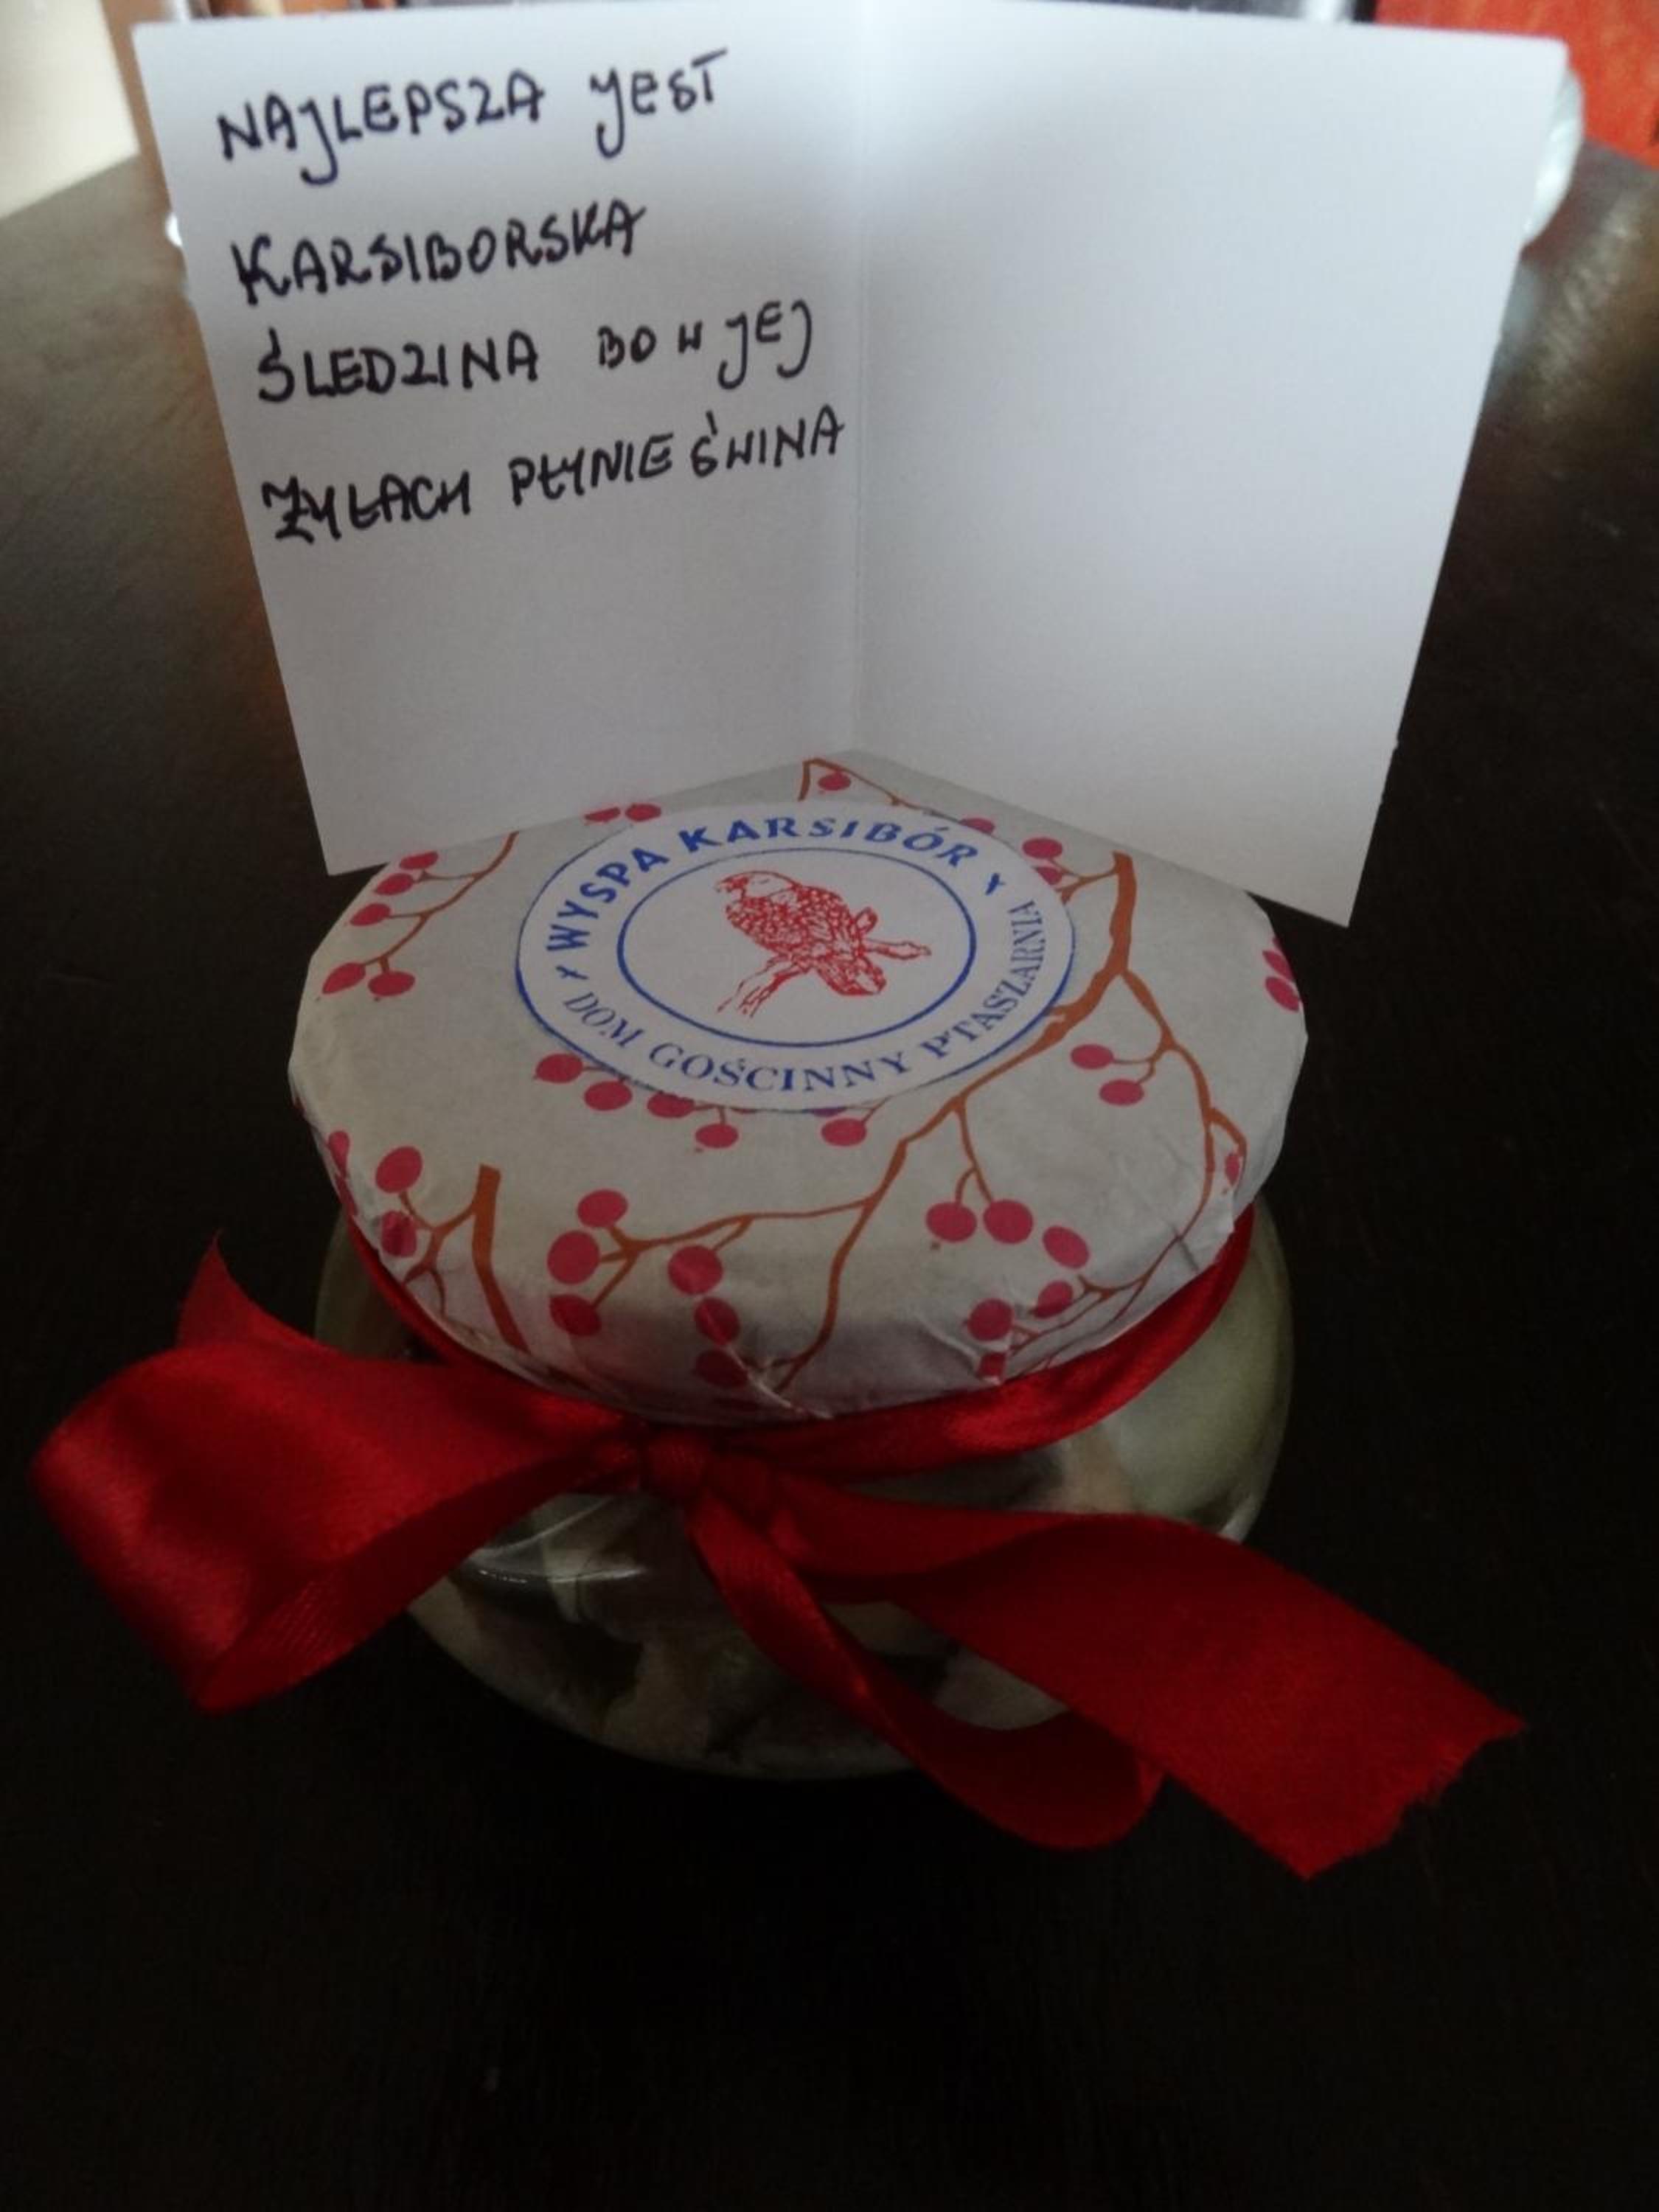 NAJLEPSZA JEST
KARSIBORSKA
ŚLEDZINA BO W JEJ
ŻYŁACH PŁYNIE ŚWINA
WYSPA KARSIBÓR
DOM GOŚCINNY PTASZARNIA